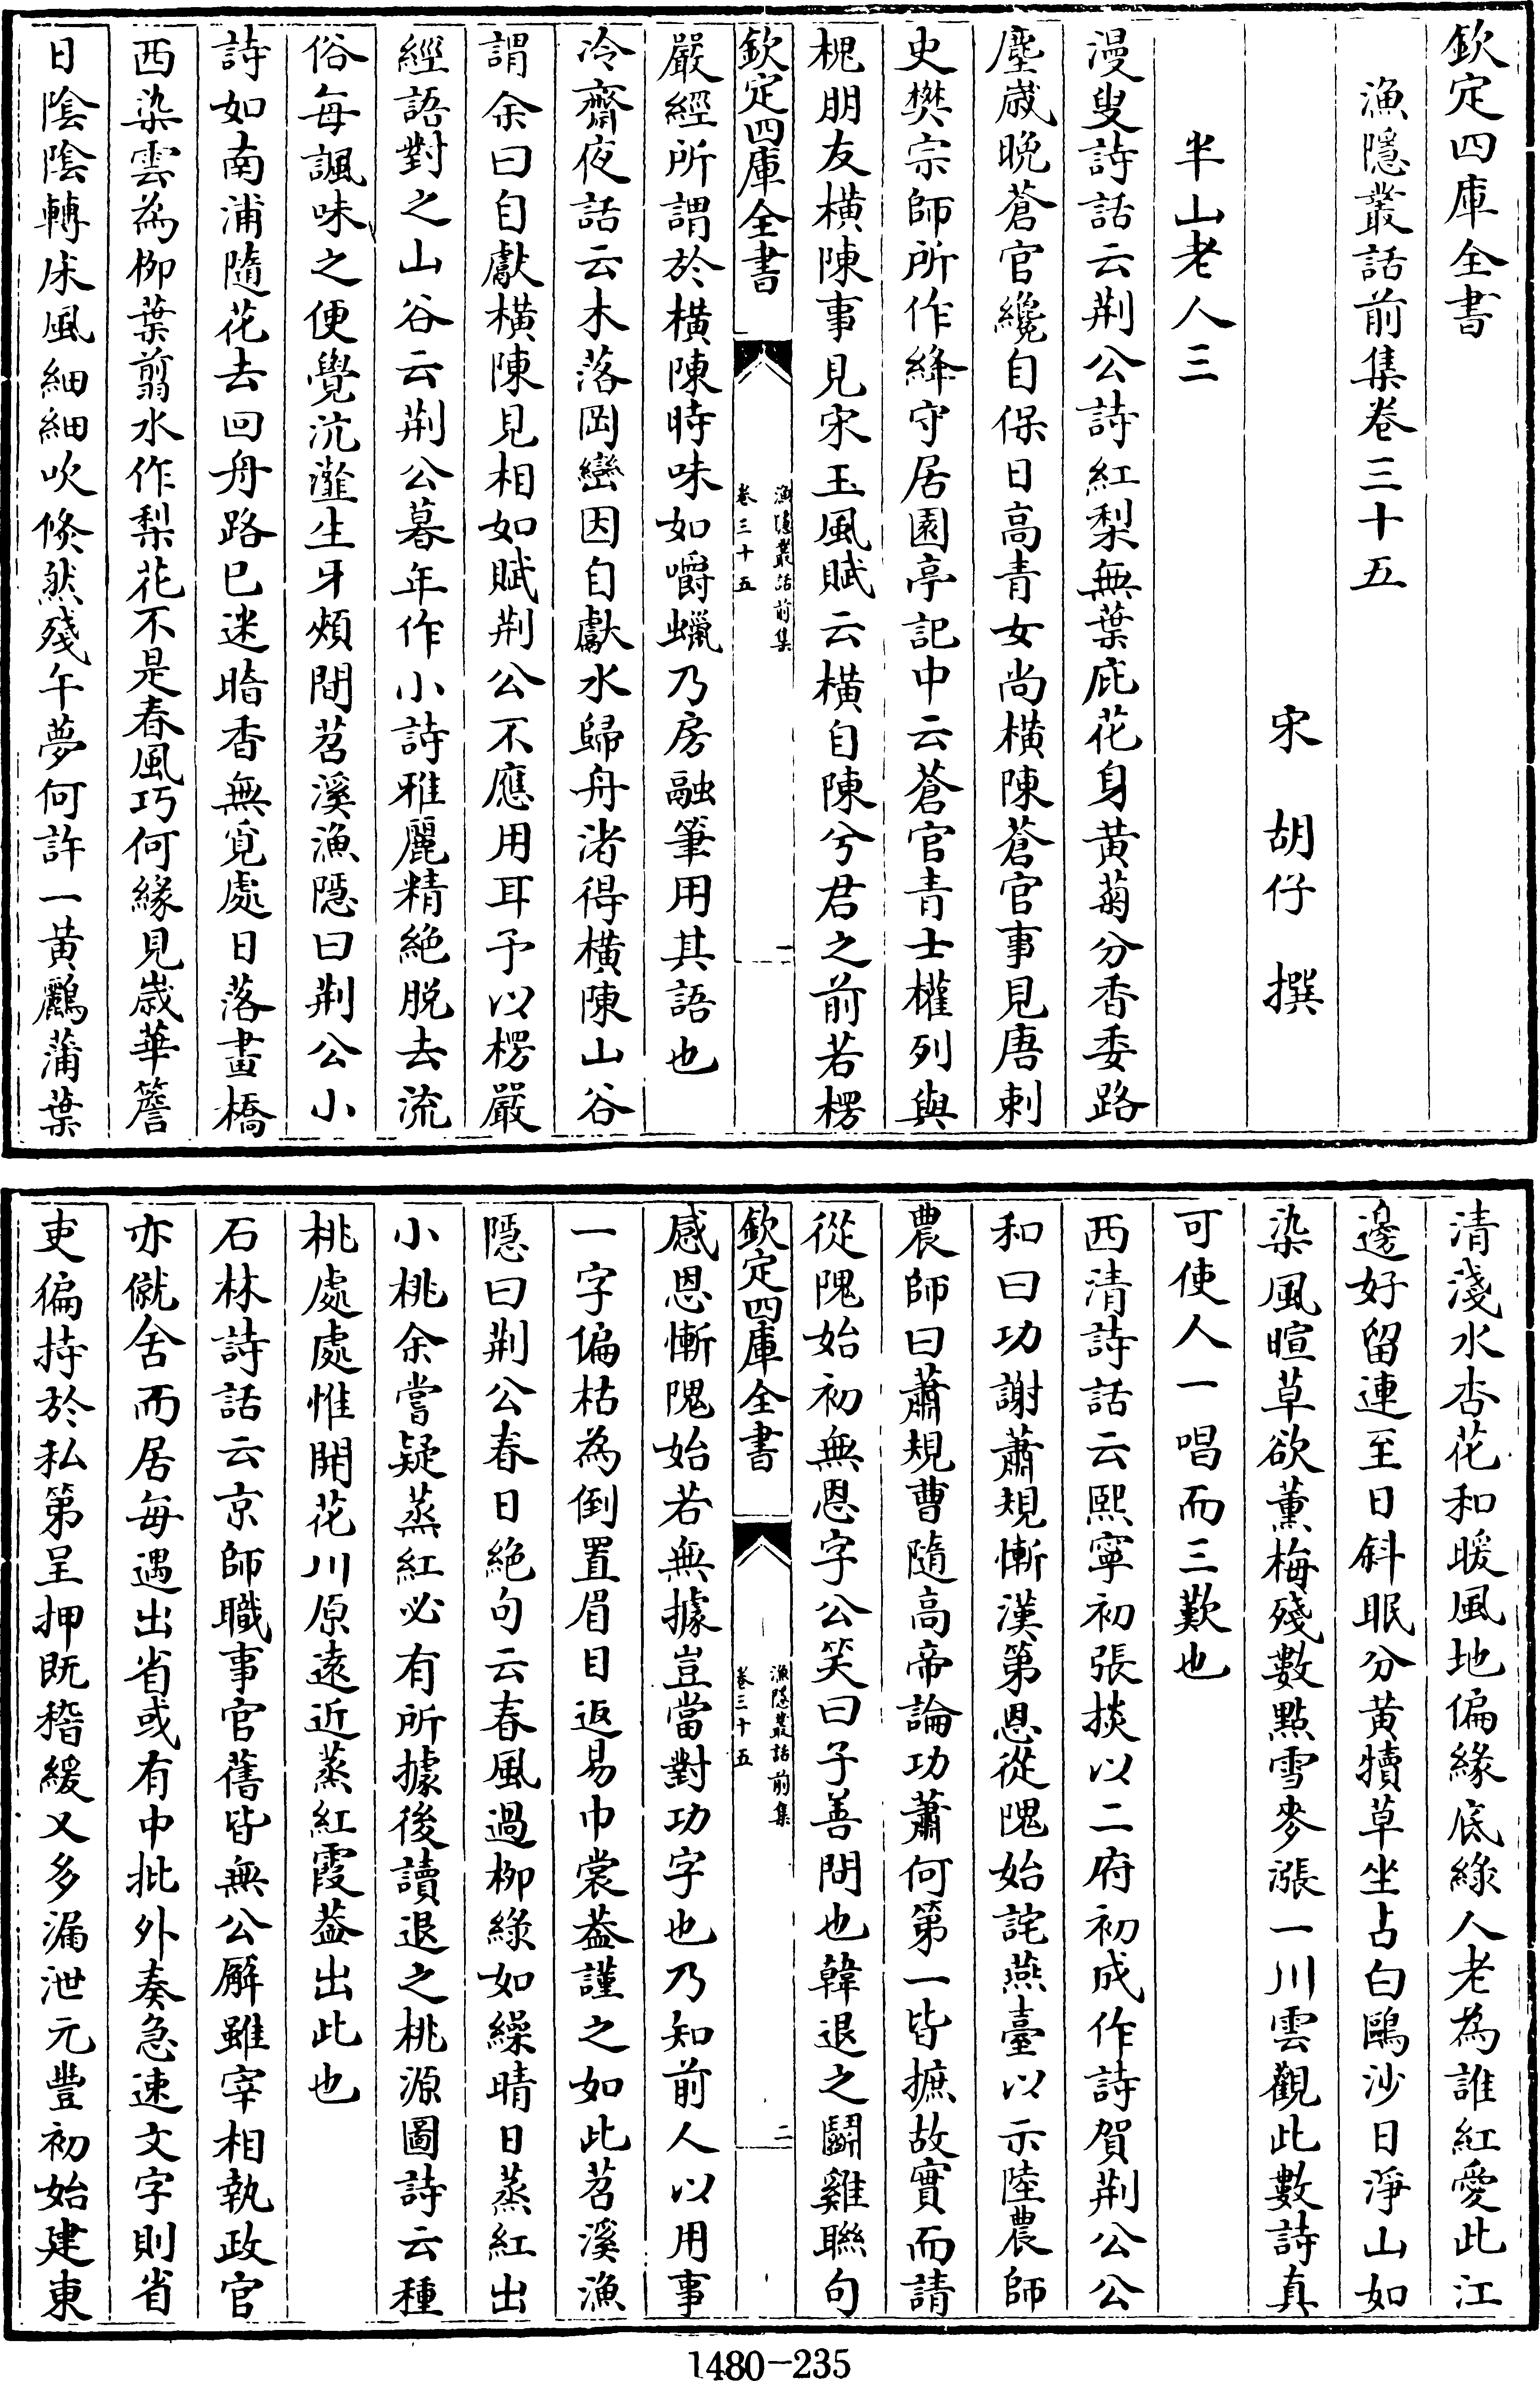 欽定四庫全書
漁隱叢話前集卷三十五
宋 胡仔 撰
半山老人三
漫叟詩話云荆公詩紅梨無葉庇花身黃菊分香委路
塵歲晚蒼官纔自保日高青女尚横陳蒼官事見唐刺
史樊宗師所作絳守居園亭記中云蒼官青士槯列與
槐朋友横陳事見宋玉風賦云横自陳兮君之前若楞
欽定四庫全書
漁隱叢話前集
卷三十五
一
嚴經所謂於横陳時味如嚼蠟乃房融筆用其語也
冷齋夜話云木落岡巒因自獻水歸舟渚得横陳山谷
謂余曰自獻横陳見相如賦荆公不應用耳予以楞嚴
經語對之山谷云荆公暮年作小詩雅麗精絶脱去流
俗每諷味之便覺沆瀣生牙頰間苕溪漁隱曰荆公小
詩如南浦隨花去回舟路已迷暗香無覓處日落畫橋
西染雲為柳葉翦水作梨花不是春風巧何緣見歲華簷
日陰陰轉床風細細吹翛然殘午夢何許一黄鸝蒲葉
清淺水杏花和暖風地偏緣底緑人老為誰紅愛此江
邊好留連至日斜眠分黄犢草坐占白鷗沙日淨山如
染風暄草欲薰梅殘數點雪麥漲一川雲觀此數詩真
可使人一唱而三歎也
西清詩話云熙寧初張掞以二府初成作詩賀荆公公
和曰功謝蕭規慚漢第恩從隗始詫燕臺以示陸農師
農師曰蕭規曹隨高帝論功蕭何第一皆摭故實而請
從隗始初無恩字公笑曰子善問也韓退之鬭雞聯句
欽定四庫全書
漁隱叢話前集
卷三十五
二
感恩慚隗始若無據豈當對功字也乃知前人以用事
一字偏枯為倒置眉目返易巾裳葢謹之如此苕溪漁
隱曰荆公春日絶句云春風過柳緑如繰晴日蒸紅出
小桃余嘗疑蒸紅必有所據後讀退之桃源圖詩云種
桃處處惟開花川原遠近蒸紅霞葢出此也
石林詩話云京師職事官舊皆無公廨雖宰相執政官
亦僦舍而居每遇出省或有中批外奏急速文字則省
吏徧持於私第呈押既稽緩又多漏泄元豐初始建東
1480-235